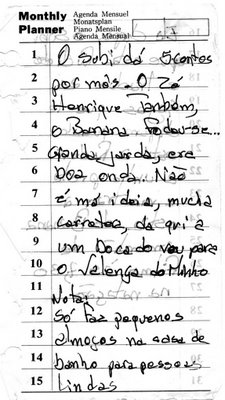 Monthly Planner
Agenda Mensuel
Monatsplan
Piano Mensile
Agenda Mensual
1 O Subi dá 5 contos
2 por mês. O Zé
3 Henrique Também,
4 o Banana. Fodar-se...
5 Ganda, era
6 boa onda. Não
7 é má ideia, mucha
8 , da qui a
9 um boca do vou para
10 o Valença do Minho
11 Nota:
12 Só faz pequenos
13 almoços na casa de
14 banho para pessoas
15 lindas